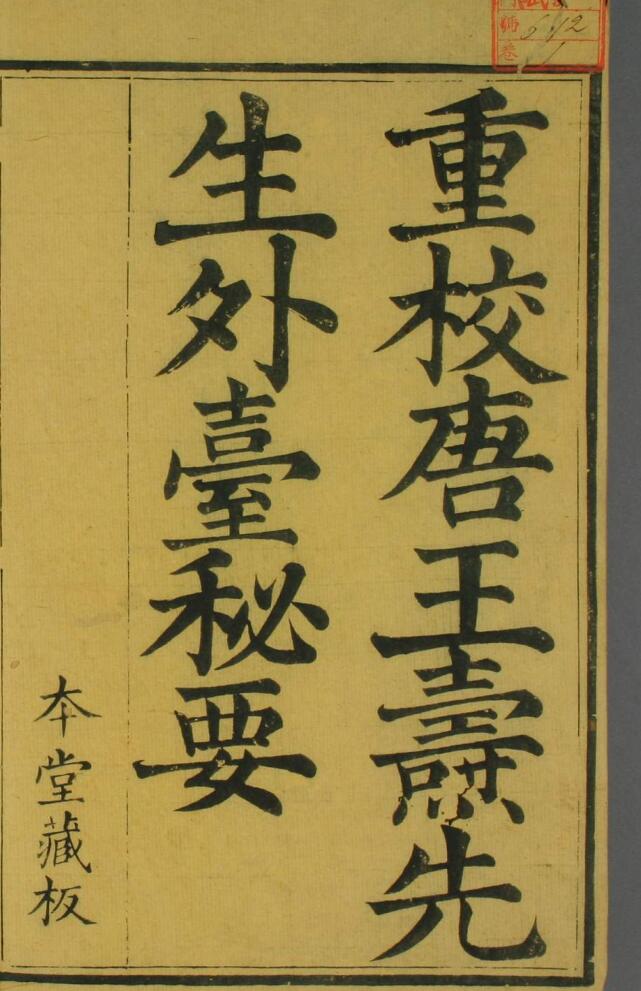 重校唐王燾先
生外臺秘要
本堂藏板
號
卷
612
1